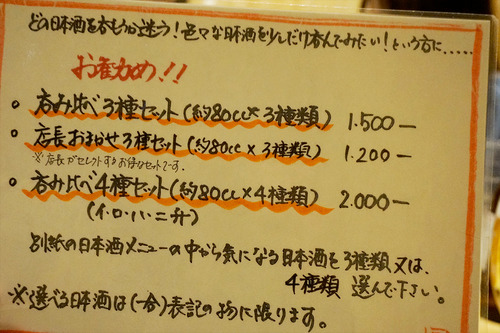 どの日本酒を呑もうか迷う！色々な日本酒を少しだけ呑んでみたい！という方に.....
お勧め！！
○ 呑み比べ3種セット(約80cc×3種類) 1.500ー
○ 店長おまかせ3種セット(約80cc×3種類) 1.200ー
※店長がセレクトするお得なセットです。
○ 呑み比べ4種セット(約80cc×4種類) 2.000ー
(イ・ロ・ハ・ニ升)
別紙の日本酒メニューの中から気になる日本酒を3種類又は、
4種類 選んで下さい。
※選べる日本酒は(一合)表記の物に限ります。